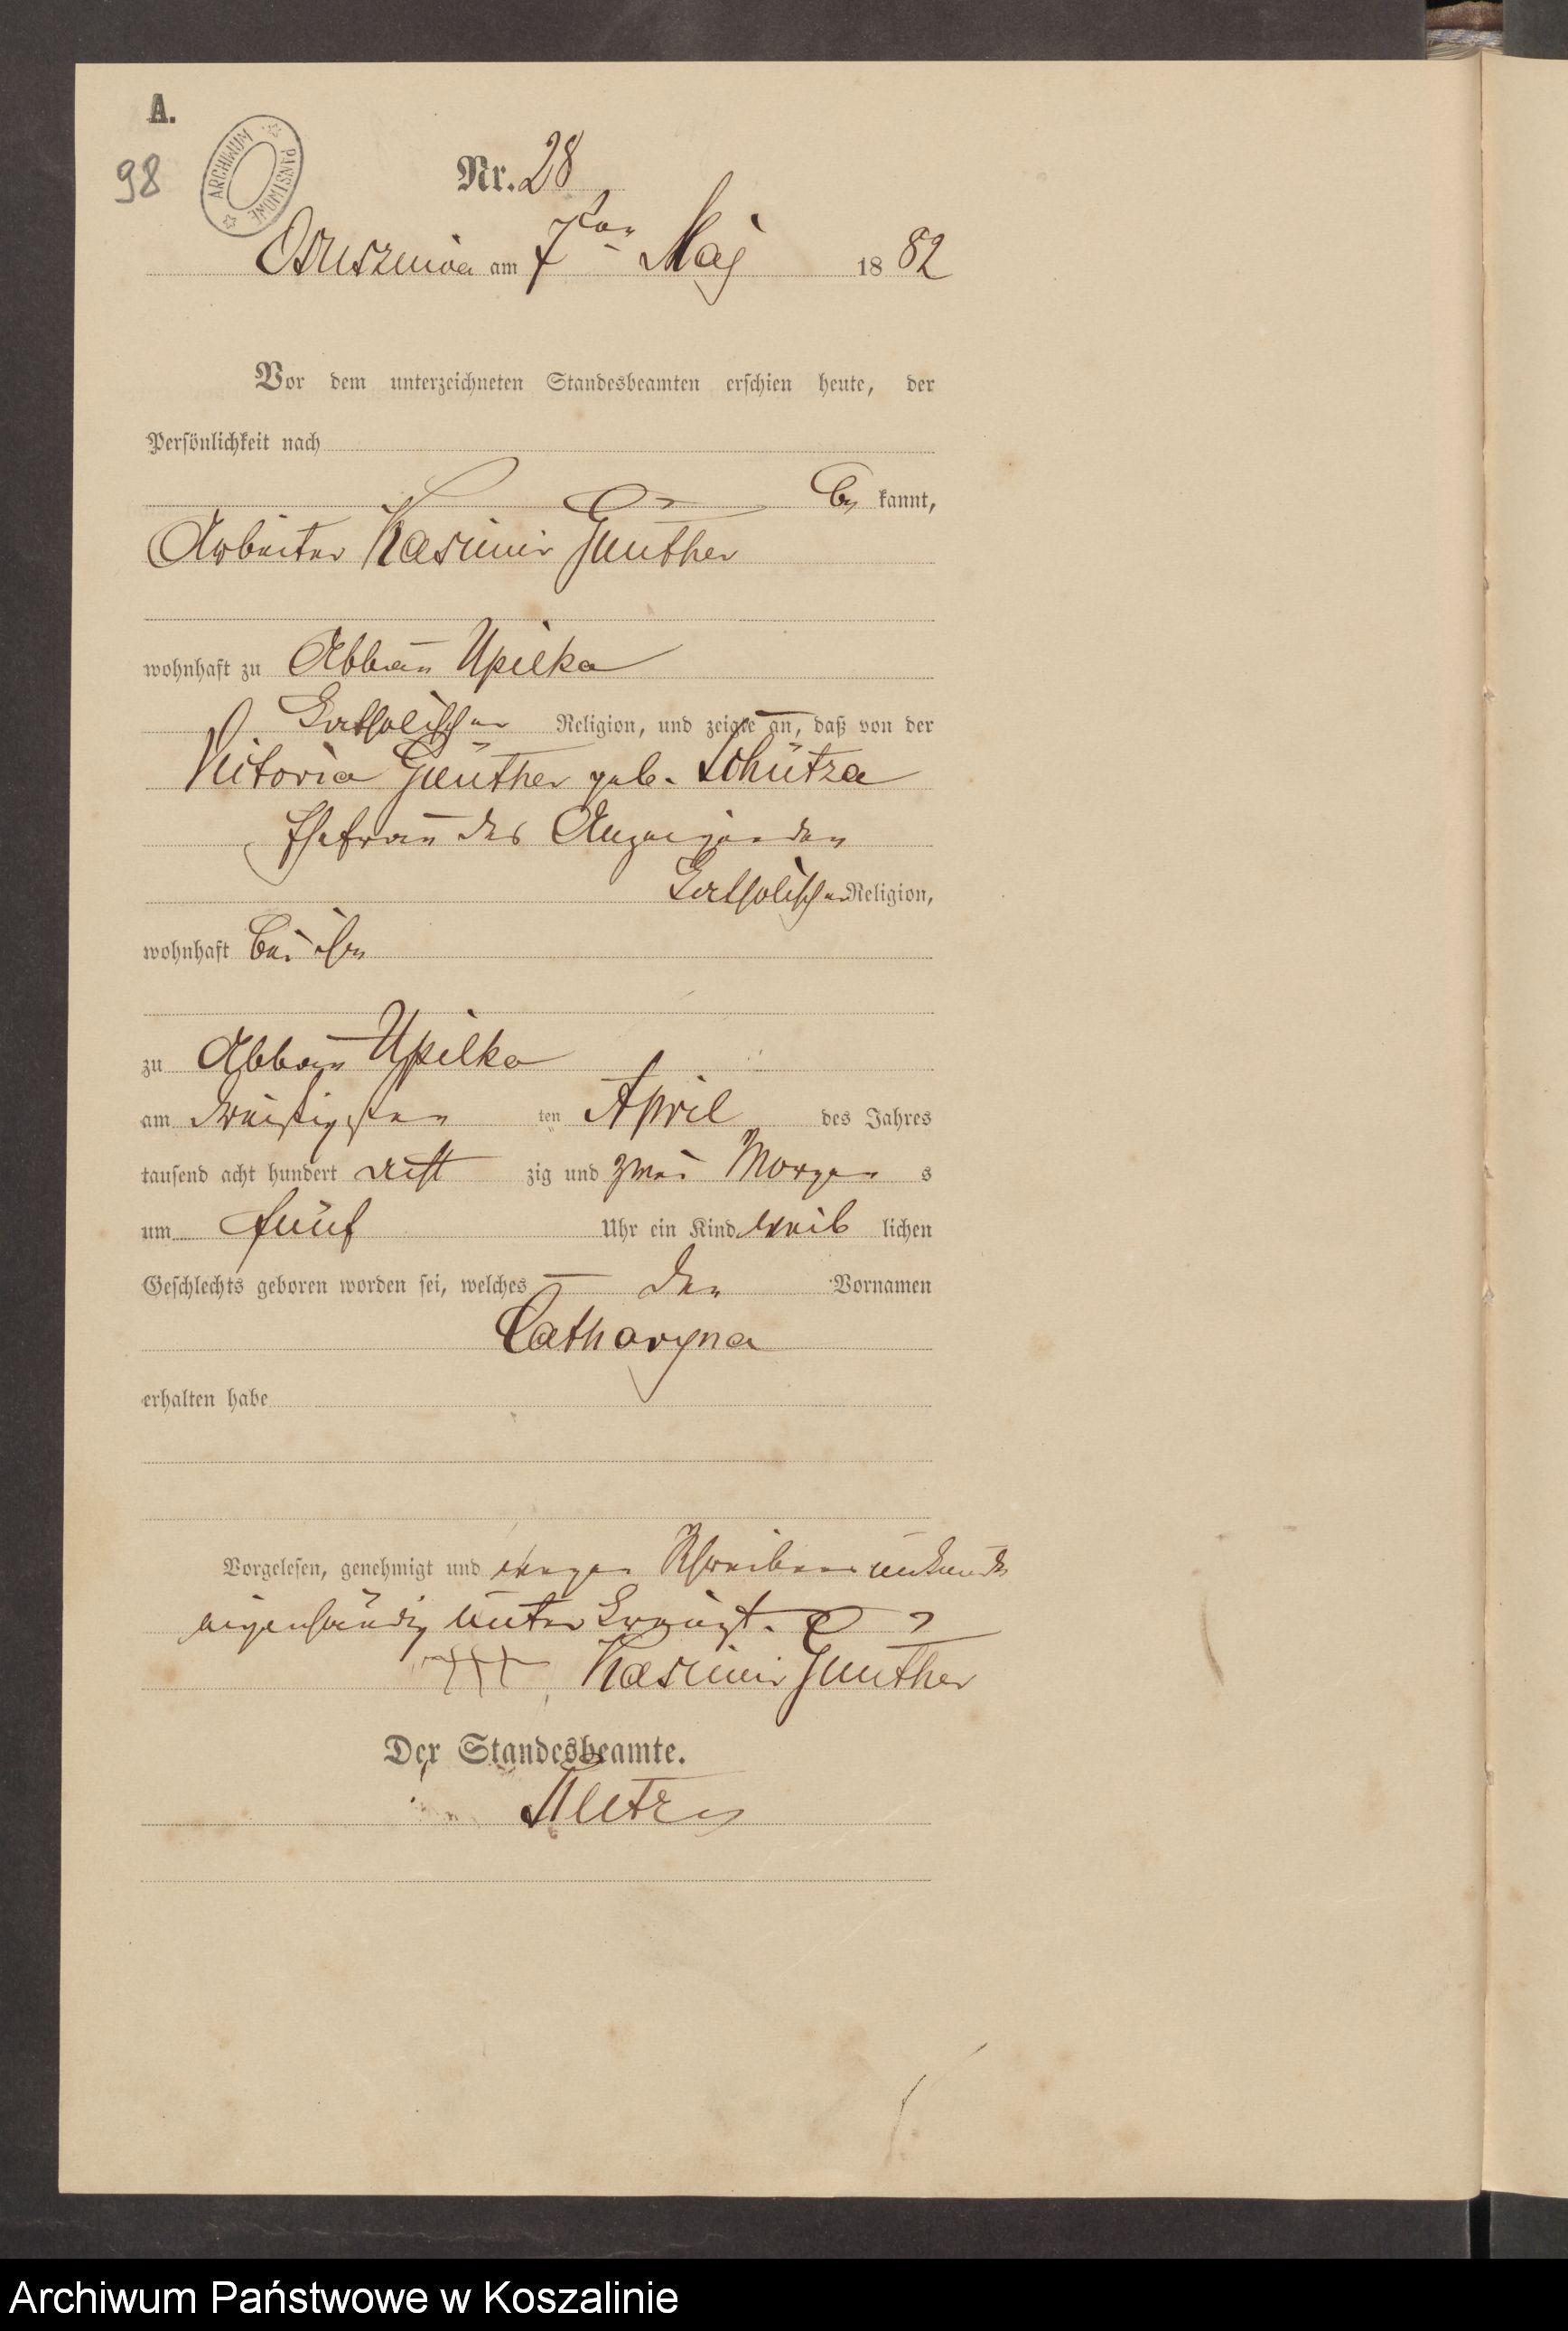 A.
98
ARCHIWUM PAŃSTWOWE
Nr. 28
Osusznica am 7ten Maj 1882
Vor dem unterzeichneten Standesbeamten erschien heute, der
Persönlichkeit nach
be kannt,
Arbeiter Kasimir Günther
wohnhaft zu Abbau Upilka
katholischer Religion, und zeigte an, daß von der
Victoria Günther geb. Schütza
Ehefrau des Anzeigenden
katholischer Religion,
wohnhaft bei ihm
zu Abbau Upilka
am dreißigsten ten April des Jahres
tausend acht hundert acht zig und zwei Morgen s
um fünf Uhr ein Kind weib lichen
Geschlechts geboren worden sei, welches den Vornamen
Catharyna
erhalten habe
Vorgelesen, genehmigt und wegen Schreibens unkunde
eigenhändig unter kreuzt.
+++ Kasimir Günther
Der Standesbeamte.
Archiwum Państwowe w Koszalinie